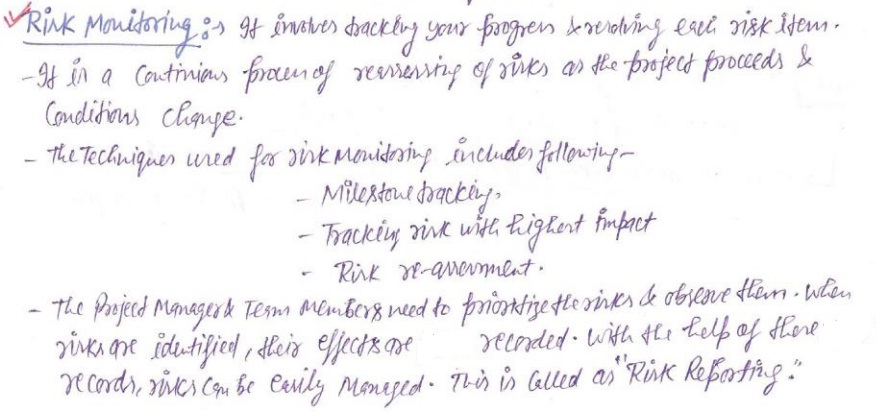 Risk Monitoring :→ It involves tracking your progress & resolving each risk item.
- It is a Continious process of reassessing of risks as the project proceeds &
Conditions change.
- The Techniques used for risk Monitoring includes following -
- Milestone tracking.
- Tracking risk with highest impact
- Risk re-assessment.
- The Project Manager & Team Members need to prioritize the risks & observe them. When
risks are identified, their effects are recorded. With the help of these
records, risks can be easily Managed. This is Called as "Risk Reporting."